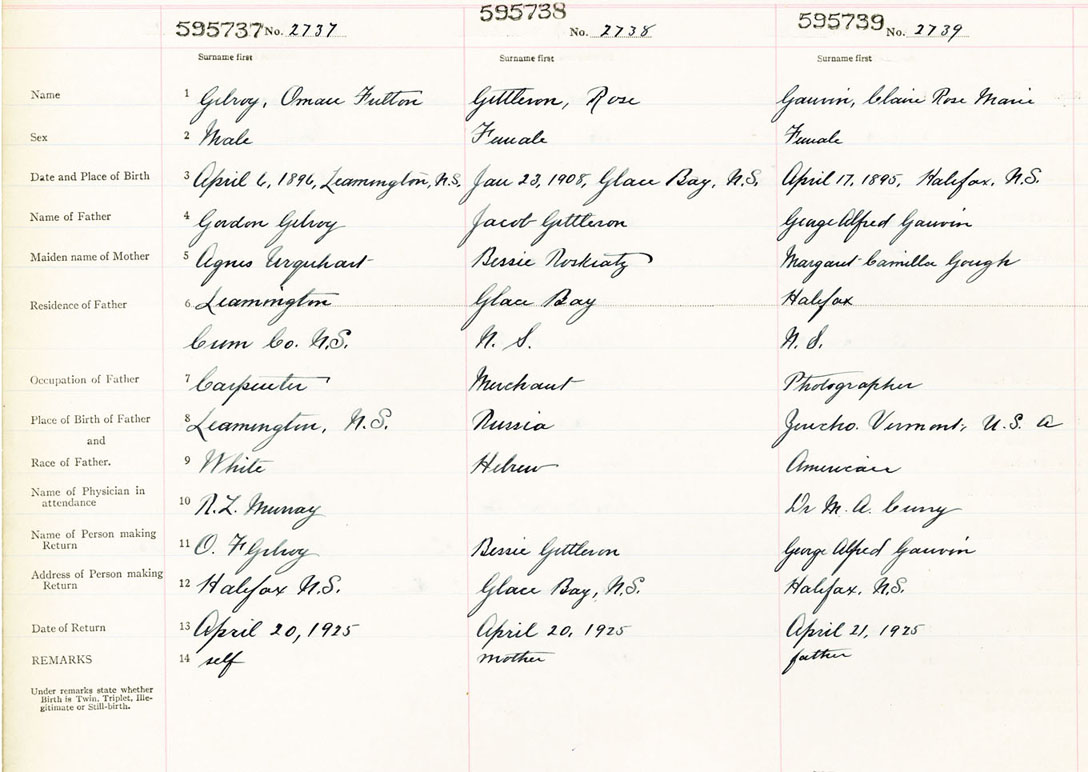 595737 No. 2737 595738 No. 2738 595739 No. 2739
Surname first Surname first Surname first
Name 1 Gilroy, Omar Fulton Gittleson, Rose Gauvin, Claire Rose Marie
Sex 2 Male Female Female
Date and Place of Birth 3 April 6, 1896, Leamington, N.S. Jan 23, 1908, Glace Bay, N.S. April 17, 1895, Halifax, N.S.
Name of Father 4 Gordon Gilroy Jacob Gittleson George Alfred Gauvin
Maiden name of Mother 5 Agnes Urquhart Bessie Margaret Camilla Gough
Residence of Father 6 Leamington Glace Bay Halifax
Cum Co. N.S. N. S. N. S.
Occupation of Father 7 Carpenter Merchant Photographer
Place of Birth of Father 8 Leamington, N.S. Russia Jericho. Vermont, U.S. A
and
Race of Father. 9 White Hebrew American
Name of Physician in
attendance 10 R.L. Murray Dr M. A. Curry
Name of Person making
Return 11 O. F Gilroy Bessie Gittleson George Alfred Gauvin
Address of Person making
Return 12 Halifax N.S. Glace Bay, N.S. Halifax, N.S.
Date of Return 13 April 20, 1925 April 20, 1925 April 21, 1925
REMARKS 14 self mother father
Under remarks state whether
Birth is Twin, Triplet, Ille-
gitimate or Still-birth.